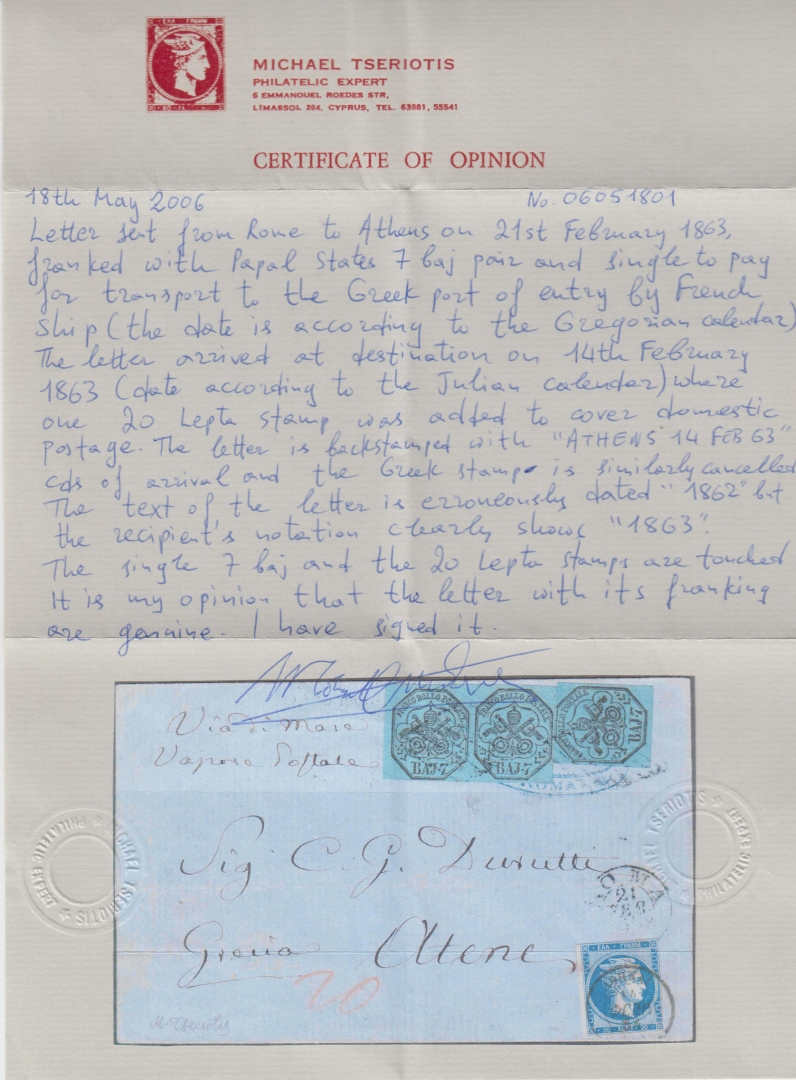 MICHAEL TSERIOTIS
PHILATELIC EXPERT
6 EMMANOUEL ROEDES STR,
LIMASSOL 204, CYPRUS, TEL. 63881, 55541
CERTIFICATE OF OPINION
18th May 2006 No. 06051801
Letter sent from Rome to Athens on 21st February 1863,
franked with Papal States 7 baj pair and single to pay
for transport to the Greek port of entry by French
ship (the date is according to the Gregorian calendar)
The letter arrived at destination on 14th February
1863 (date according to the Julian calendar) where
one 20 Lepta stamp was added to cover domestic
postage. The letter is backstamped with "ATHENS 14 FEB 63"
cds of arrival and the Greek stamp is similarly cancelled
The text of the letter is erroneously dated "1862" but
the recipient's notation clearly shows "1863".
The single 7 baj and the 20 Lepta stamps are touched
It is my opinion that the letter with its franking
are genuine. I have signed it.
Via di Mare
Vapore Postale
FRANCO BOLLO POSTALE
BAJ-7
FRANCO BOLLO POSTALE
BAJ-7
FRANCO BOLLO POSTALE
BAJ-7
Sig C. G.
ROMA
21
FEB
Grecia Atene
20
ΕΛΛ ΓΡΑΜΜ
20 ΛΕΠΤ 20
M. Tseriotis
MICHAEL TSERIOTIS
PHILATELIC EXPERT
MICHAEL TSERIOTIS
PHILATELIC EXPERT